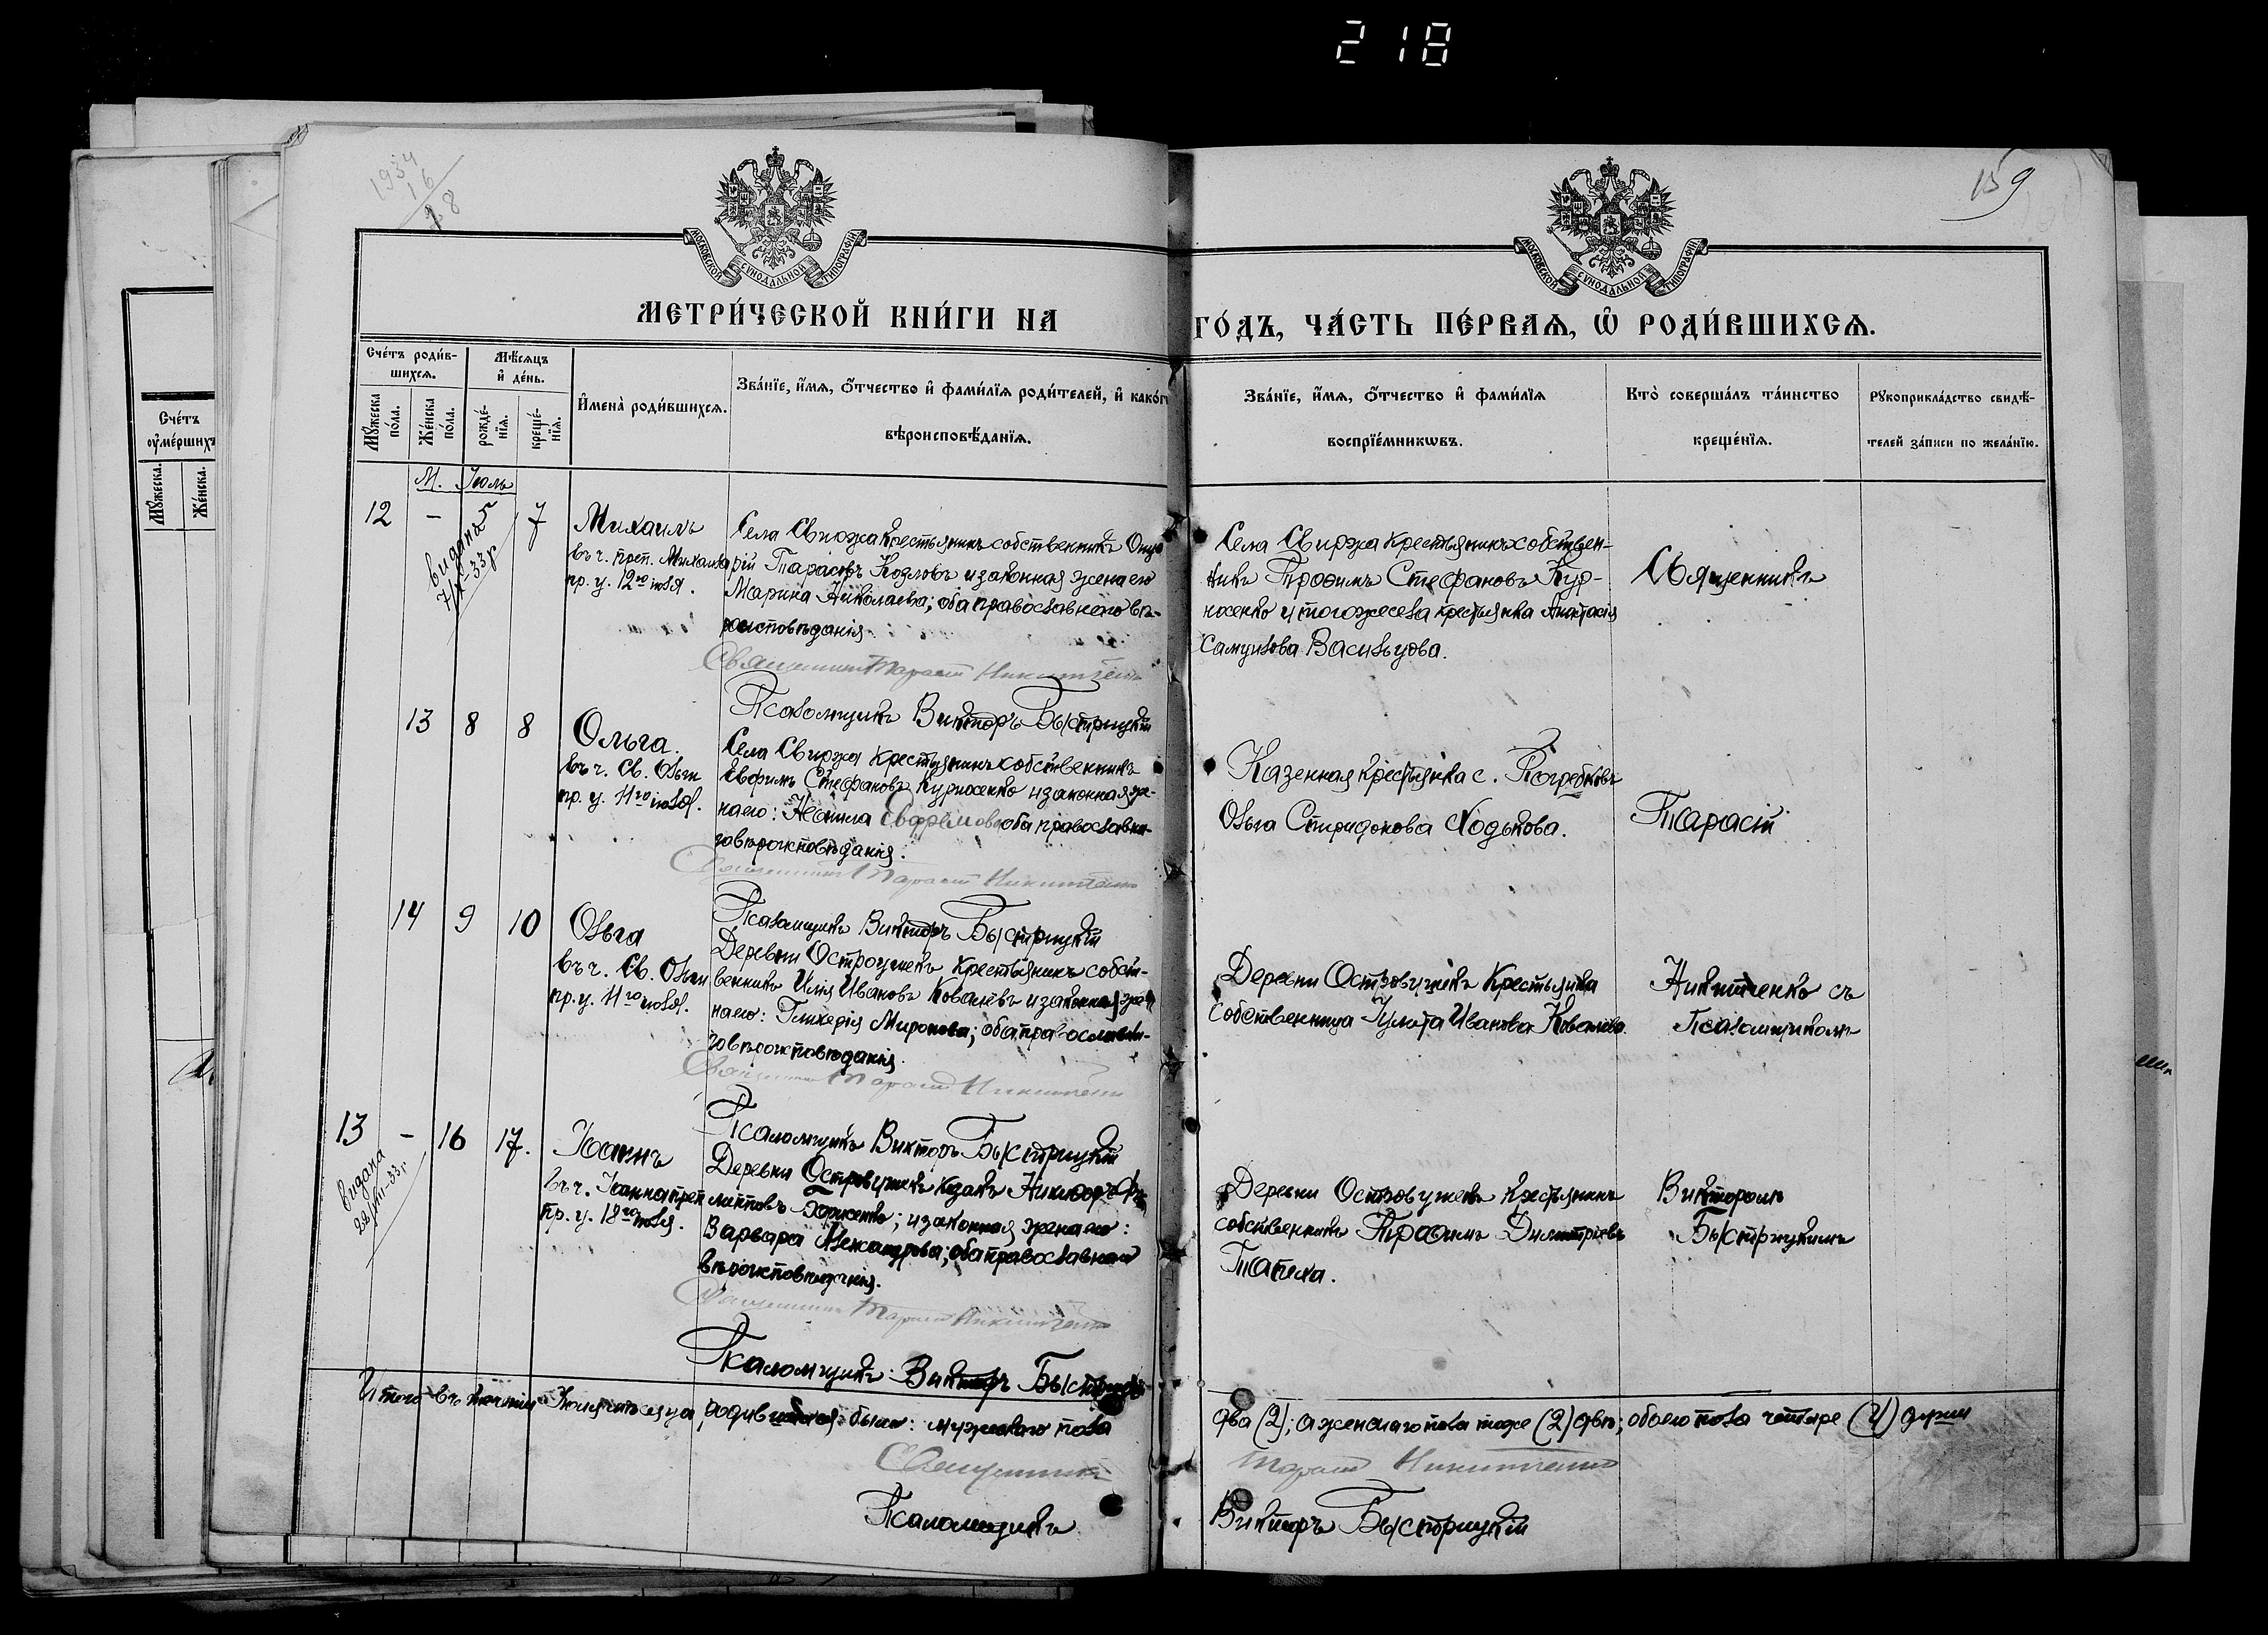 218
1934
16
18
159
МОСКОВСКОЙ СУНОДАЛЬНОЙ ТИПОГРАФІИ
МОСКОВСКОЙ СУНОДАЛЬНОЙ ТИПОГРАФІИ
МЕТРИ́ЧЕСКОЙ КНИ́ГИ НА
ГО́ДЪ, ЧА́СТЬ ПЕ́РВАѦ, Ѡ҆ РОДИ́ВШИХСѦ.
Счéтъ роди́в-
шихсѧ.
Мѣ́сѧцъ
и҆ де́нь.
Мꙋ́жеска
по́ла.
Же́нска
по́ла.
рожде́-
нїѧ.
креще́-
нїѧ.
И҆мена̀ роди́вшихсѧ.
Зва́нїе, и҆́мѧ, ѻ҆́тчество и҆ фами́лїѧ роди́телей, и҆ како́гѡ
вѣроисповѣ́данїѧ.
Зва́нїе, и҆́мѧ, ѻ҆́тчество и҆ фами́лїѧ
воспрїе́мникѡвъ.
Кто̀ соверша́лъ та́инство
креще́нїѧ.
Рꙋкоприкла́дство свидѣ́-
телей за́писи по жела́нїю.
Счéтъ
ѹ҆ме́ршихъ
Мꙋ́жеска.
Же́нска.
М. Іюль
12 - 5 7
видана
7/IX-33 р
Михаилъ
въ ч. преп. Михаила
пр. у. 12го іюля.
Села Свиржа крестьянинъ собственникъ
Тарасовъ Козловъ и законная жена его
Марина Николаева; оба православнаго вѣ-
роисповѣданія
Священникъ Тарасій Никитченко
Псаломщикъ Викторъ Быстрицкій
Села Свиржа крестьянинъ собствен-
никъ Трофимъ Стефановъ Кур-
носенко и тогоже села крестьянка Анастасія
Самуилова Васильцова.
Священникъ
13 8 8
Ольга.
въ ч. Св. Ольги
пр. у. 11го іюля.
Села Свиржа крестьянинъ собственникъ
Евфимъ Стефановъ Курносенко и законная же-
на его: Неонила Евфремова оба православна-
го вѣроисповѣданія.
Священникъ Тарасій Никитченко
Псаломщикъ Викторъ Быстрицкій
Казенная крестьянка с. Погребковъ
Ольга Спиридонова Ходькова.
Тарасій
14 9 10
Ольга
въ ч. Св. Ольги
пр. у. 11го іюля.
Деревни Остроушекъ крестьянинъ собст-
венникъ Илія Ивановъ Ковалевъ и законная же-
на его: Гликерія Миронова; оба православна-
го вѣроисповѣданія.
Священникъ Тарасій Никитченко
Псаломщикъ Викторъ Быстрицкій
Деревни Островушекъ крестьянка
собственница Улита Иванова Ковалева.
Никитченко съ
Псаломщикомъ
13 - 16 17.
видана
22/VIII-33 г.
Іоаннъ
въ ч. Іоанна преп
пр. у. 18го іюля.
Деревни Островушекъ козакъ Никифоръ
и законная жена его:
Варвара Александрова; оба православнаго
вѣроисповѣданія.
Священникъ Тарасій Никитченко
Псаломщикъ Викторъ Быстрицкій
Деревни Островушекъ крестьянинъ
собственникъ Трофимъ Димитріевъ
Викторомъ
Быстрицкимъ
Итого въ теченіи Іюля мѣсяца родившихся было: мужескаго пола
два (2); а женскаго пола тоже (2) двѣ; обоего пола четыре (4) души
Священникъ
Тарасій Никитченко
Псаломщикъ
Викторъ Быстрицкій